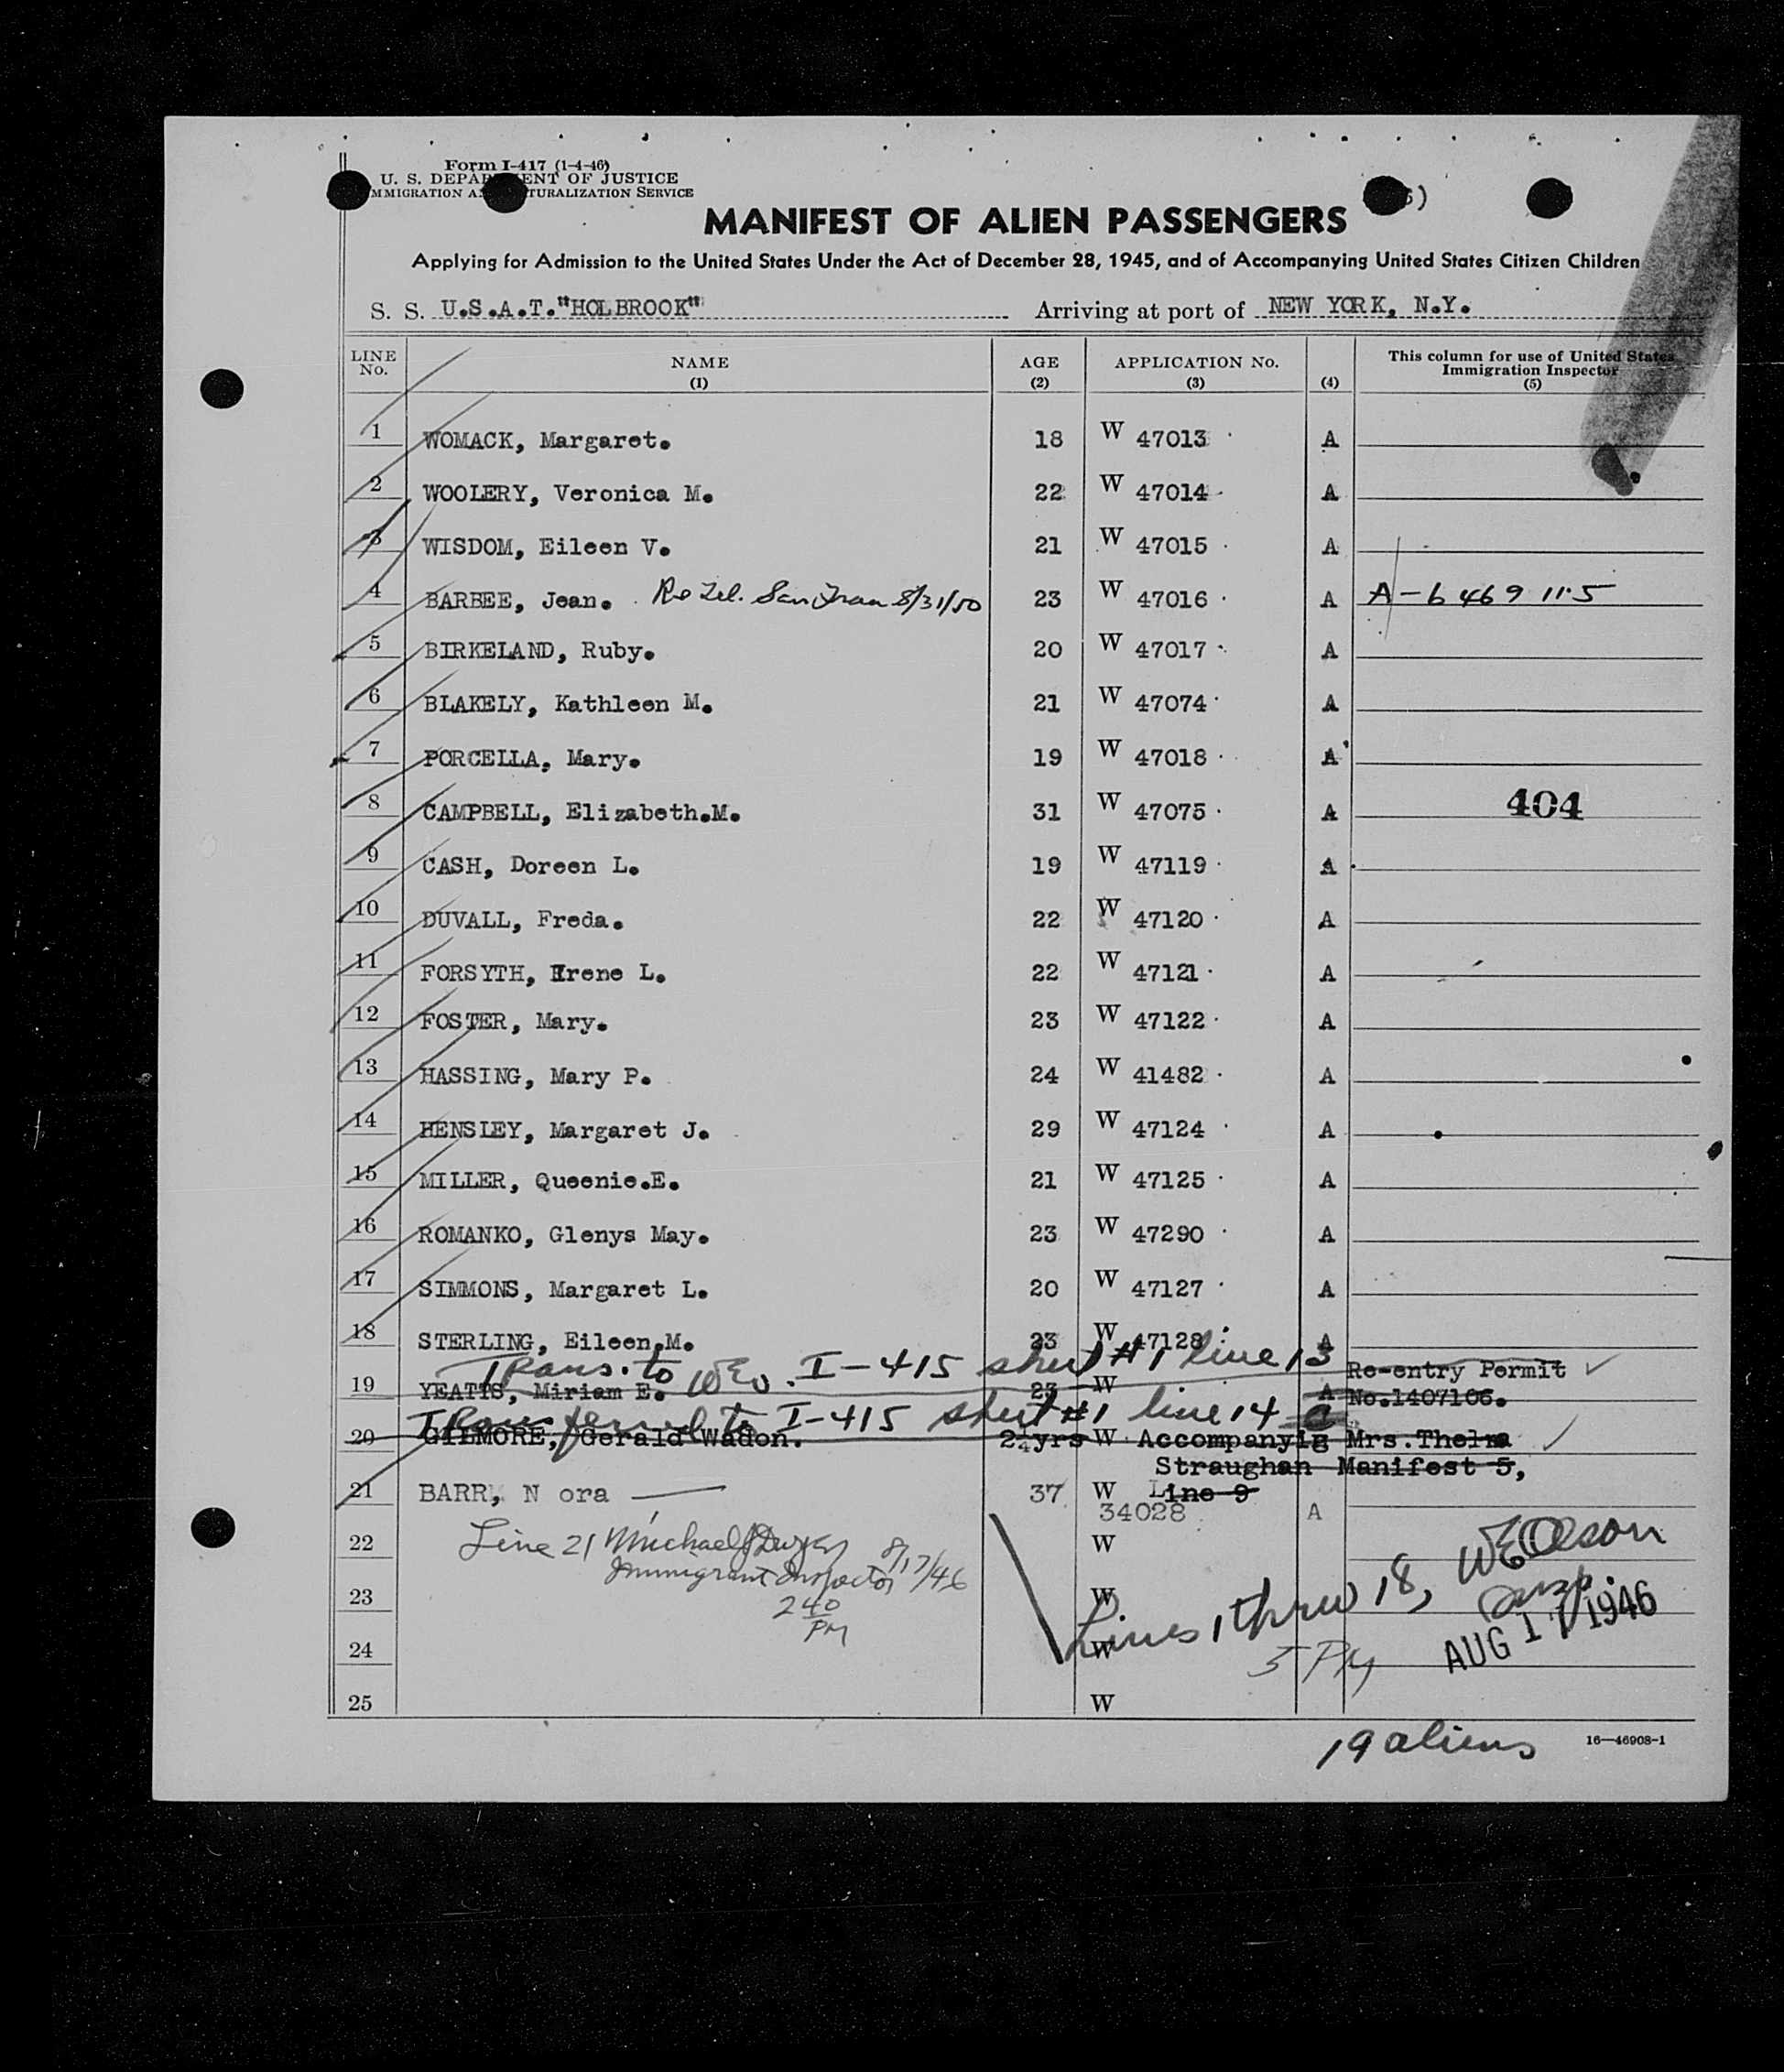 Form I-417 (1-4-46)
U. S. DEPARTMENT OF JUSTICE
IMMIGRATION AND NATURALIZATION SERVICE
MANIFEST OF ALIEN PASSENGERS
Applying for Admission to the United States Under the Act of December 28, 1945, and of Accompanying United States Citizen Children
S. S. U.S.A.T."HOLBROOK" Arriving at port of NEW YORK, N.Y.
LINE No. NAME (1) AGE (2) APPLICATION No. (3) (4) This column for use of United States Immigration Inspector (5)
1 WOMACK, Margaret. 18 W 47013 A
2 WOOLERY, Veronica M. 22 W 47014 A
3 WISDOM, Eileen V. 21 W 47015 A
4 BARBEE, Jean. Re Tel. San Fran 8/31/50 23 W 47016 A A-6 469 115
5 BIRKELAND, Ruby. 20 W 47017 A
6 BLAKELY, Kathleen M. 21 W 47074 A
7 PORCELLA, Mary. 19 W 47018 A
8 CAMPBELL, Elizabeth.M. 31 W 47075 A 404
9 CASH, Doreen L. 19 W 47119 A
10 DUVALL, Freda. 22 W 47120 A
11 FORSYTH, Irene L. 22 W 47121 A
12 FOSTER, Mary. 23 W 47122 A
13 HASSING, Mary P. 24 W 41482 A
14 HENSLEY, Margaret J. 29 W 47124 A
15 MILLER, Queenie.E. 21 W 47125 A
16 ROMANKO, Glenys May. 23 W 47290 A
17 SIMMONS, Margaret L. 20 W 47127 A
18 STERLING, Eileen.M. 23 W 47128 A
Trans. to WEO. I-415 sheet #1 line 13 Re-entry Permit
19 YEATTS, Miriam E. 23 W A No.1407106.
Transferred to I-415 sheet #1 line 14
20 GILMORE, Gerald Wadon. 2½yrs W Accompanyig Mrs.Thelma
Straughan Manifest 5,
21 BARR, N ora 37 W Line 9
34028 A
22 Line 21 Michael J 8/17/46 W WEOlson
Immigrant Inspector Insp.
23 W Lines 1 thru 18,
2 40 PM AUG 17 1946
24 W 5 PM
25 W
19 aliens
16—46908-1